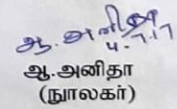 ஆ. அனிதா
4.7.17
ஆ.அனிதா
(நூலகர்)